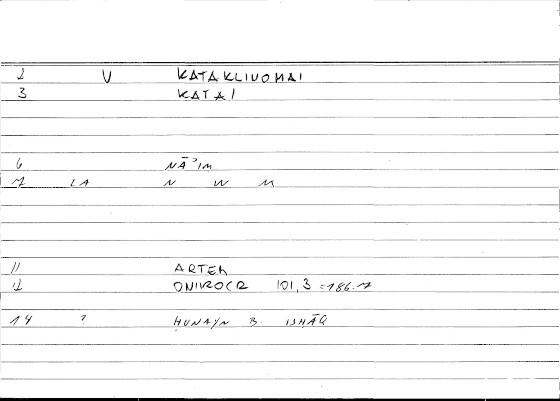 2 V KATAKLINOMAI
3 KATAI
6 NĀʾIM
7 LA N W M
11 ARTEM
12 ONIROCR 101,3 = 186.7
14 ? ḤUNAYN B. ISḤĀQ